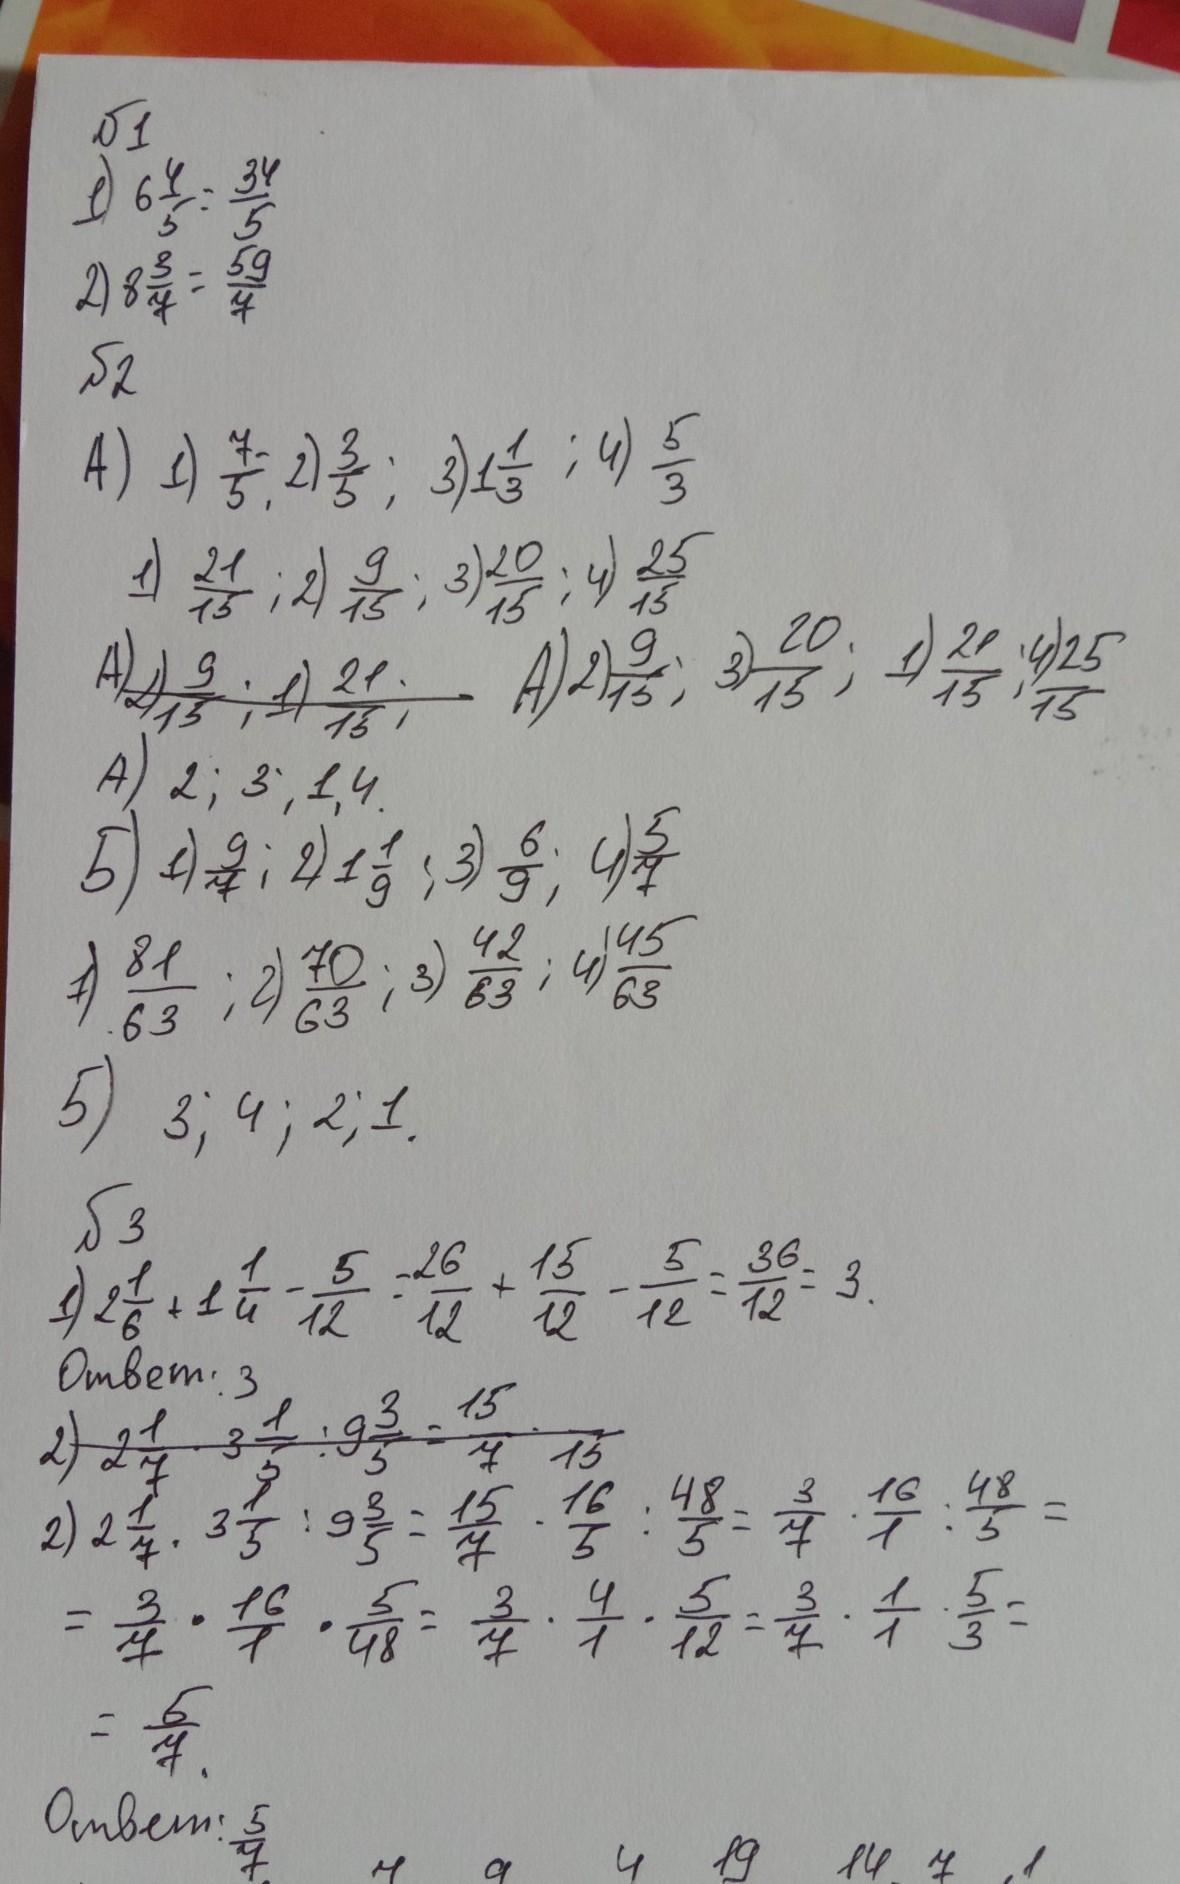 №1
1) 6 4/5 = 34/5
2) 8 3/7 = 59/7
№2
А) 1) 7/5; 2) 3/5; 3) 1 1/3; 4) 5/3
1) 21/15; 2) 9/15; 3) 20/15; 4) 25/15
А) 2) 9/15; 1) 21/15; А) 2) 9/15; 3) 20/15; 1) 21/15; 4) 25/15
А) 2; 3; 1, 4.
Б) 1) 9/7; 2) 1 1/9; 3) 6/9; 4) 5/7
1) 81/63; 2) 70/63; 3) 42/63; 4) 45/63
Б) 3; 4; 2; 1.
№3
1) 2 1/6 + 1 1/4 - 5/12 = 26/12 + 15/12 - 5/12 = 36/12 = 3.
Ответ: 3
2) 2 1/7 · 3 1/5 : 9 3/5 = 15/7 · 15
2) 2 1/7 · 3 1/5 : 9 3/5 = 15/7 · 16/5 : 48/5 = 3/7 · 16/1 : 48/5 =
= 3/7 · 16/1 · 5/48 = 3/7 · 4/1 · 5/12 = 3/7 · 1/1 · 5/3 =
= 5/7.
Ответ: 5/7.
4 19 14 7 1